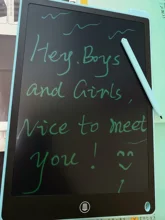 Hey, Boys
and Girls,
Nice to meet
you!